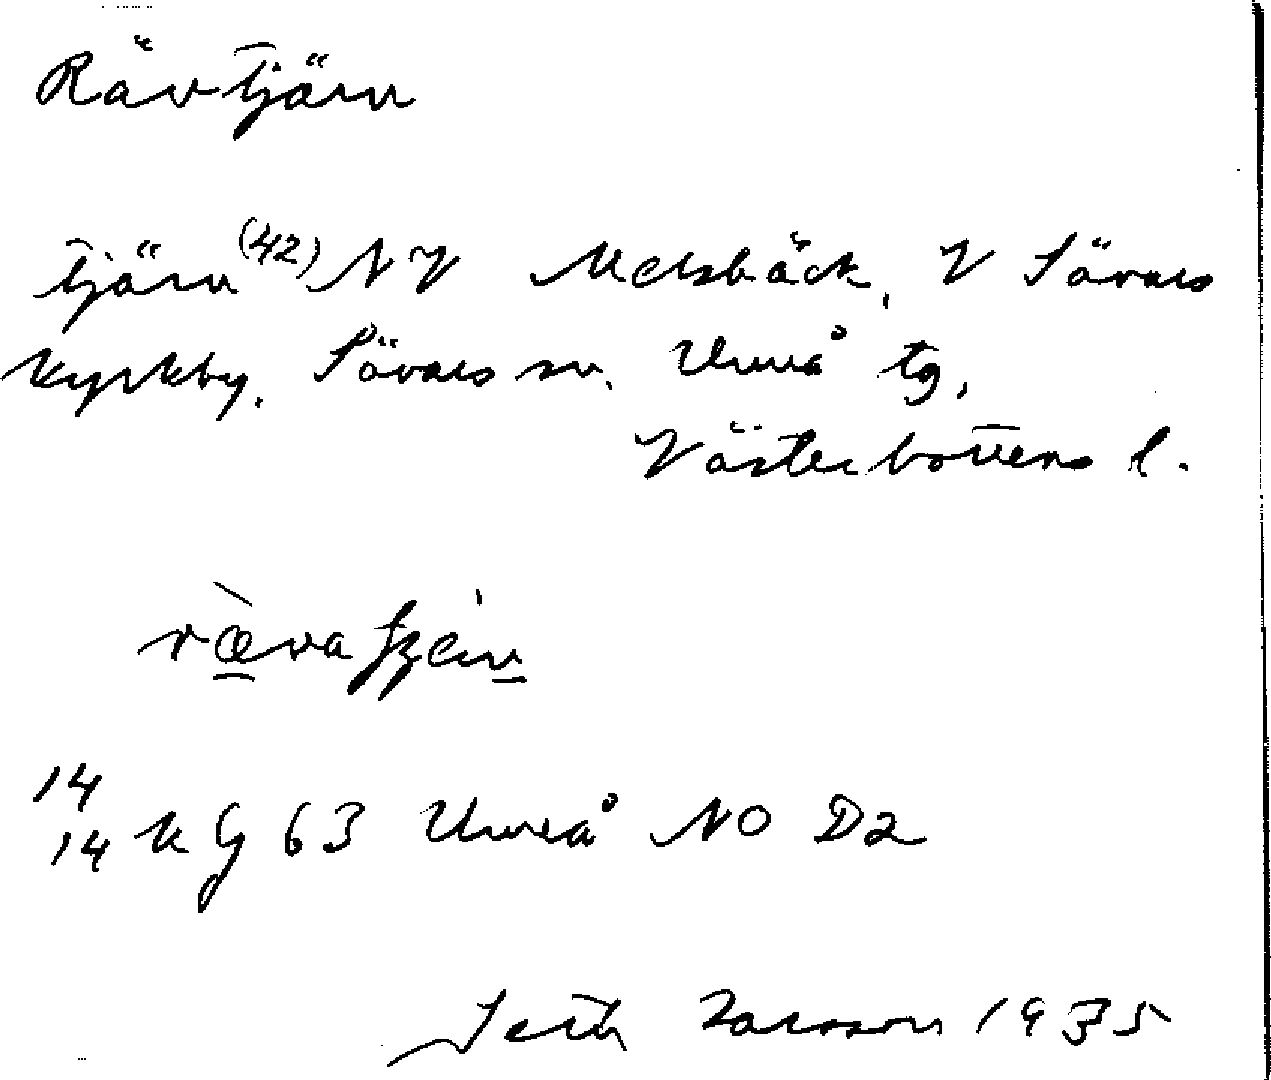 Rävtjärn
Tjärn (42) NV Melsbäck, V Sävars
kyrkby, Sävars sn, Umeå tg,
Västerbottens l.
14
14 kG 63 Umeå NO D2
Seth Larsson 1935